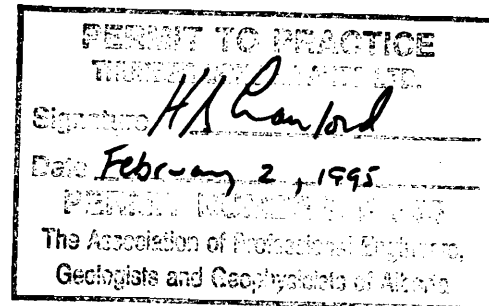 PERMIT TO PRACTICE
LTD.
Signature H Crawford
Date February 2, 1995
PERMIT NUMBER:
The Association of Professional Engineers,
Geologists and Geophysicists of Alberta